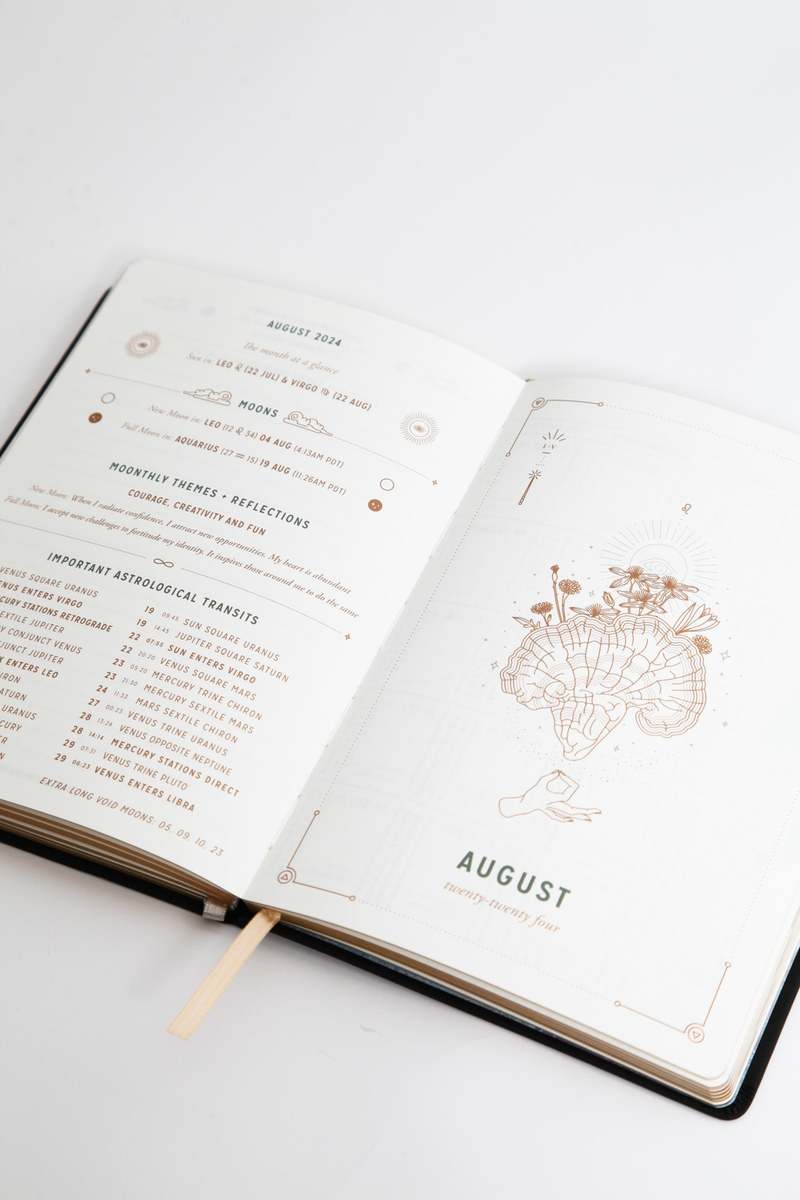 AUGUST 2024
The month at a glance
Sun in: LEO ♌ (22 JUL) & VIRGO ♍ (22 AUG)
MOONS
New Moon in: LEO (12 ♌ 34) 04 AUG (4:13AM PDT)
Full Moon in: AQUARIUS (27 ♒ 15) 19 AUG (11:26AM PDT)
MOONTHLY THEMES + REFLECTIONS
COURAGE, CREATIVITY AND FUN
New Moon: When I radiate confidence, I attract new opportunities. My heart is abundant.
Full Moon: I accept new challenges to fortitude my identity. It inspires those around me to do the same
IMPORTANT ASTROLOGICAL TRANSITS
VENUS SQUARE URANUS
ENUS ENTERS VIRGO
CURY STATIONS RETROGRADE
EXTILE JUPITER
Y CONJUNCT VENUS
JUNCT JUPITER
ENTERS LEO
IRON
ATURN
URANUS
CURY
ER
N
19 09:45 SUN SQUARE URANUS
19 14:45 JUPITER SQUARE SATURN
22 07:55 SUN ENTERS VIRGO
22 20:20 VENUS SQUARE MARS
23 05:20 MERCURY TRINE CHIRON
23 21:30 MERCURY SEXTILE MARS
24 11:33 MARS SEXTILE CHIRON
27 00:23 VENUS TRINE URANUS
28 13:24 VENUS OPPOSITE NEPTUNE
28 14:14 MERCURY STATIONS DIRECT
29 07:31 VENUS TRINE PLUTO
29 06:23 VENUS ENTERS LIBRA
EXTRA LONG VOID MOONS: 05, 09, 10, 23
♌
AUGUST
twenty-twenty four